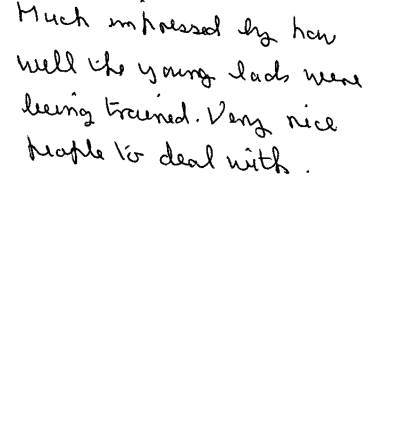 Much impressed by how
well the young lads were
being trained. Very nice
people to deal with.